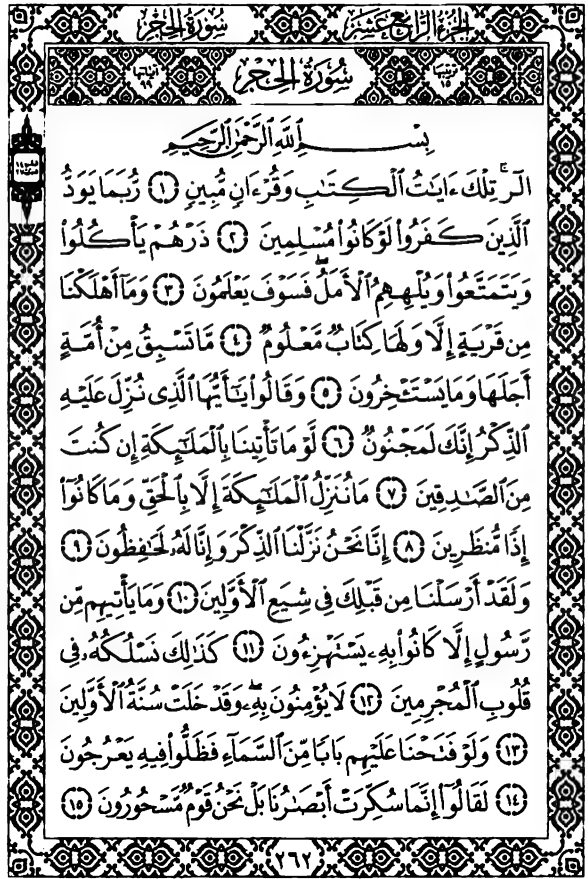 سُورَةُ الحِجْرِ
الجُزْءُ الرَّابِعَ عَشَرَ
ترتيبها ١٥
سُورَةُ الحِجْرِ
آياتها ٩٩
بِسْمِ اللَّهِ الرَّحْمَٰنِ الرَّحِيمِ
الٓرۚ تِلْكَ ءَايَٰتُ ٱلْكِتَٰبِ وَقُرْءَانٖ مُّبِينٖ ١ رُّبَمَا يَوَدُّ
ٱلَّذِينَ كَفَرُوا۟ لَوْ كَانُوا۟ مُسْلِمِينَ ٢ ذَرْهُمْ يَأْكُلُوا۟
وَيَتَمَتَّعُوا۟ وَيُلْهِهِمُ ٱلْأَمَلُۖ فَسَوْفَ يَعْلَمُونَ ٣ وَمَآ أَهْلَكْنَا
مِن قَرْيَةٍ إِلَّا وَلَهَا كِتَابٞ مَّعْلُومٞ ٤ مَّا تَسْبِقُ مِنْ أُمَّةٍ
أَجَلَهَا وَمَا يَسْتَـْٔخِرُونَ ٥ وَقَالُوا۟ يَٰٓأَيُّهَا ٱلَّذِى نُزِّلَ عَلَيْهِ
ٱلذِّكْرُ إِنَّكَ لَمَجْنُونٞ ٦ لَّوْ مَا تَأْتِينَا بِٱلْمَلَٰٓئِكَةِ إِن كُنتَ
مِنَ ٱلصَّٰدِقِينَ ٧ مَا نُنَزِّلُ ٱلْمَلَٰٓئِكَةَ إِلَّا بِٱلْحَقِّ وَمَا كَانُوٓا۟
إِذٗا مُّنظَرِينَ ٨ إِنَّا نَحْنُ نَزَّلْنَا ٱلذِّكْرَ وَإِنَّا لَهُۥ لَحَٰفِظُونَ ٩
وَلَقَدْ أَرْسَلْنَا مِن قَبْلِكَ فِى شِيَعِ ٱلْأَوَّلِينَ ١٠ وَمَا يَأْتِيهِم مِّن
رَّسُولٍ إِلَّا كَانُوا۟ بِهِۦ يَسْتَهْزِءُونَ ١١ كَذَٰلِكَ نَسْلُكُهُۥ فِى
قُلُوبِ ٱلْمُجْرِمِينَ ١٢ لَا يُؤْمِنُونَ بِهِۦۖ وَقَدْ خَلَتْ سُنَّةُ ٱلْأَوَّلِينَ
١٣ وَلَوْ فَتَحْنَا عَلَيْهِم بَابٗا مِّنَ ٱلسَّمَآءِ فَظَلُّوا۟ فِيهِ يَعْرُجُونَ
١٤ لَقَالُوٓا۟ إِنَّمَا سُكِّرَتْ أَبْصَٰرُنَا بَلْ نَحْنُ قَوْمٞ مَّسْحُورُونَ ١٥
٢٦٢